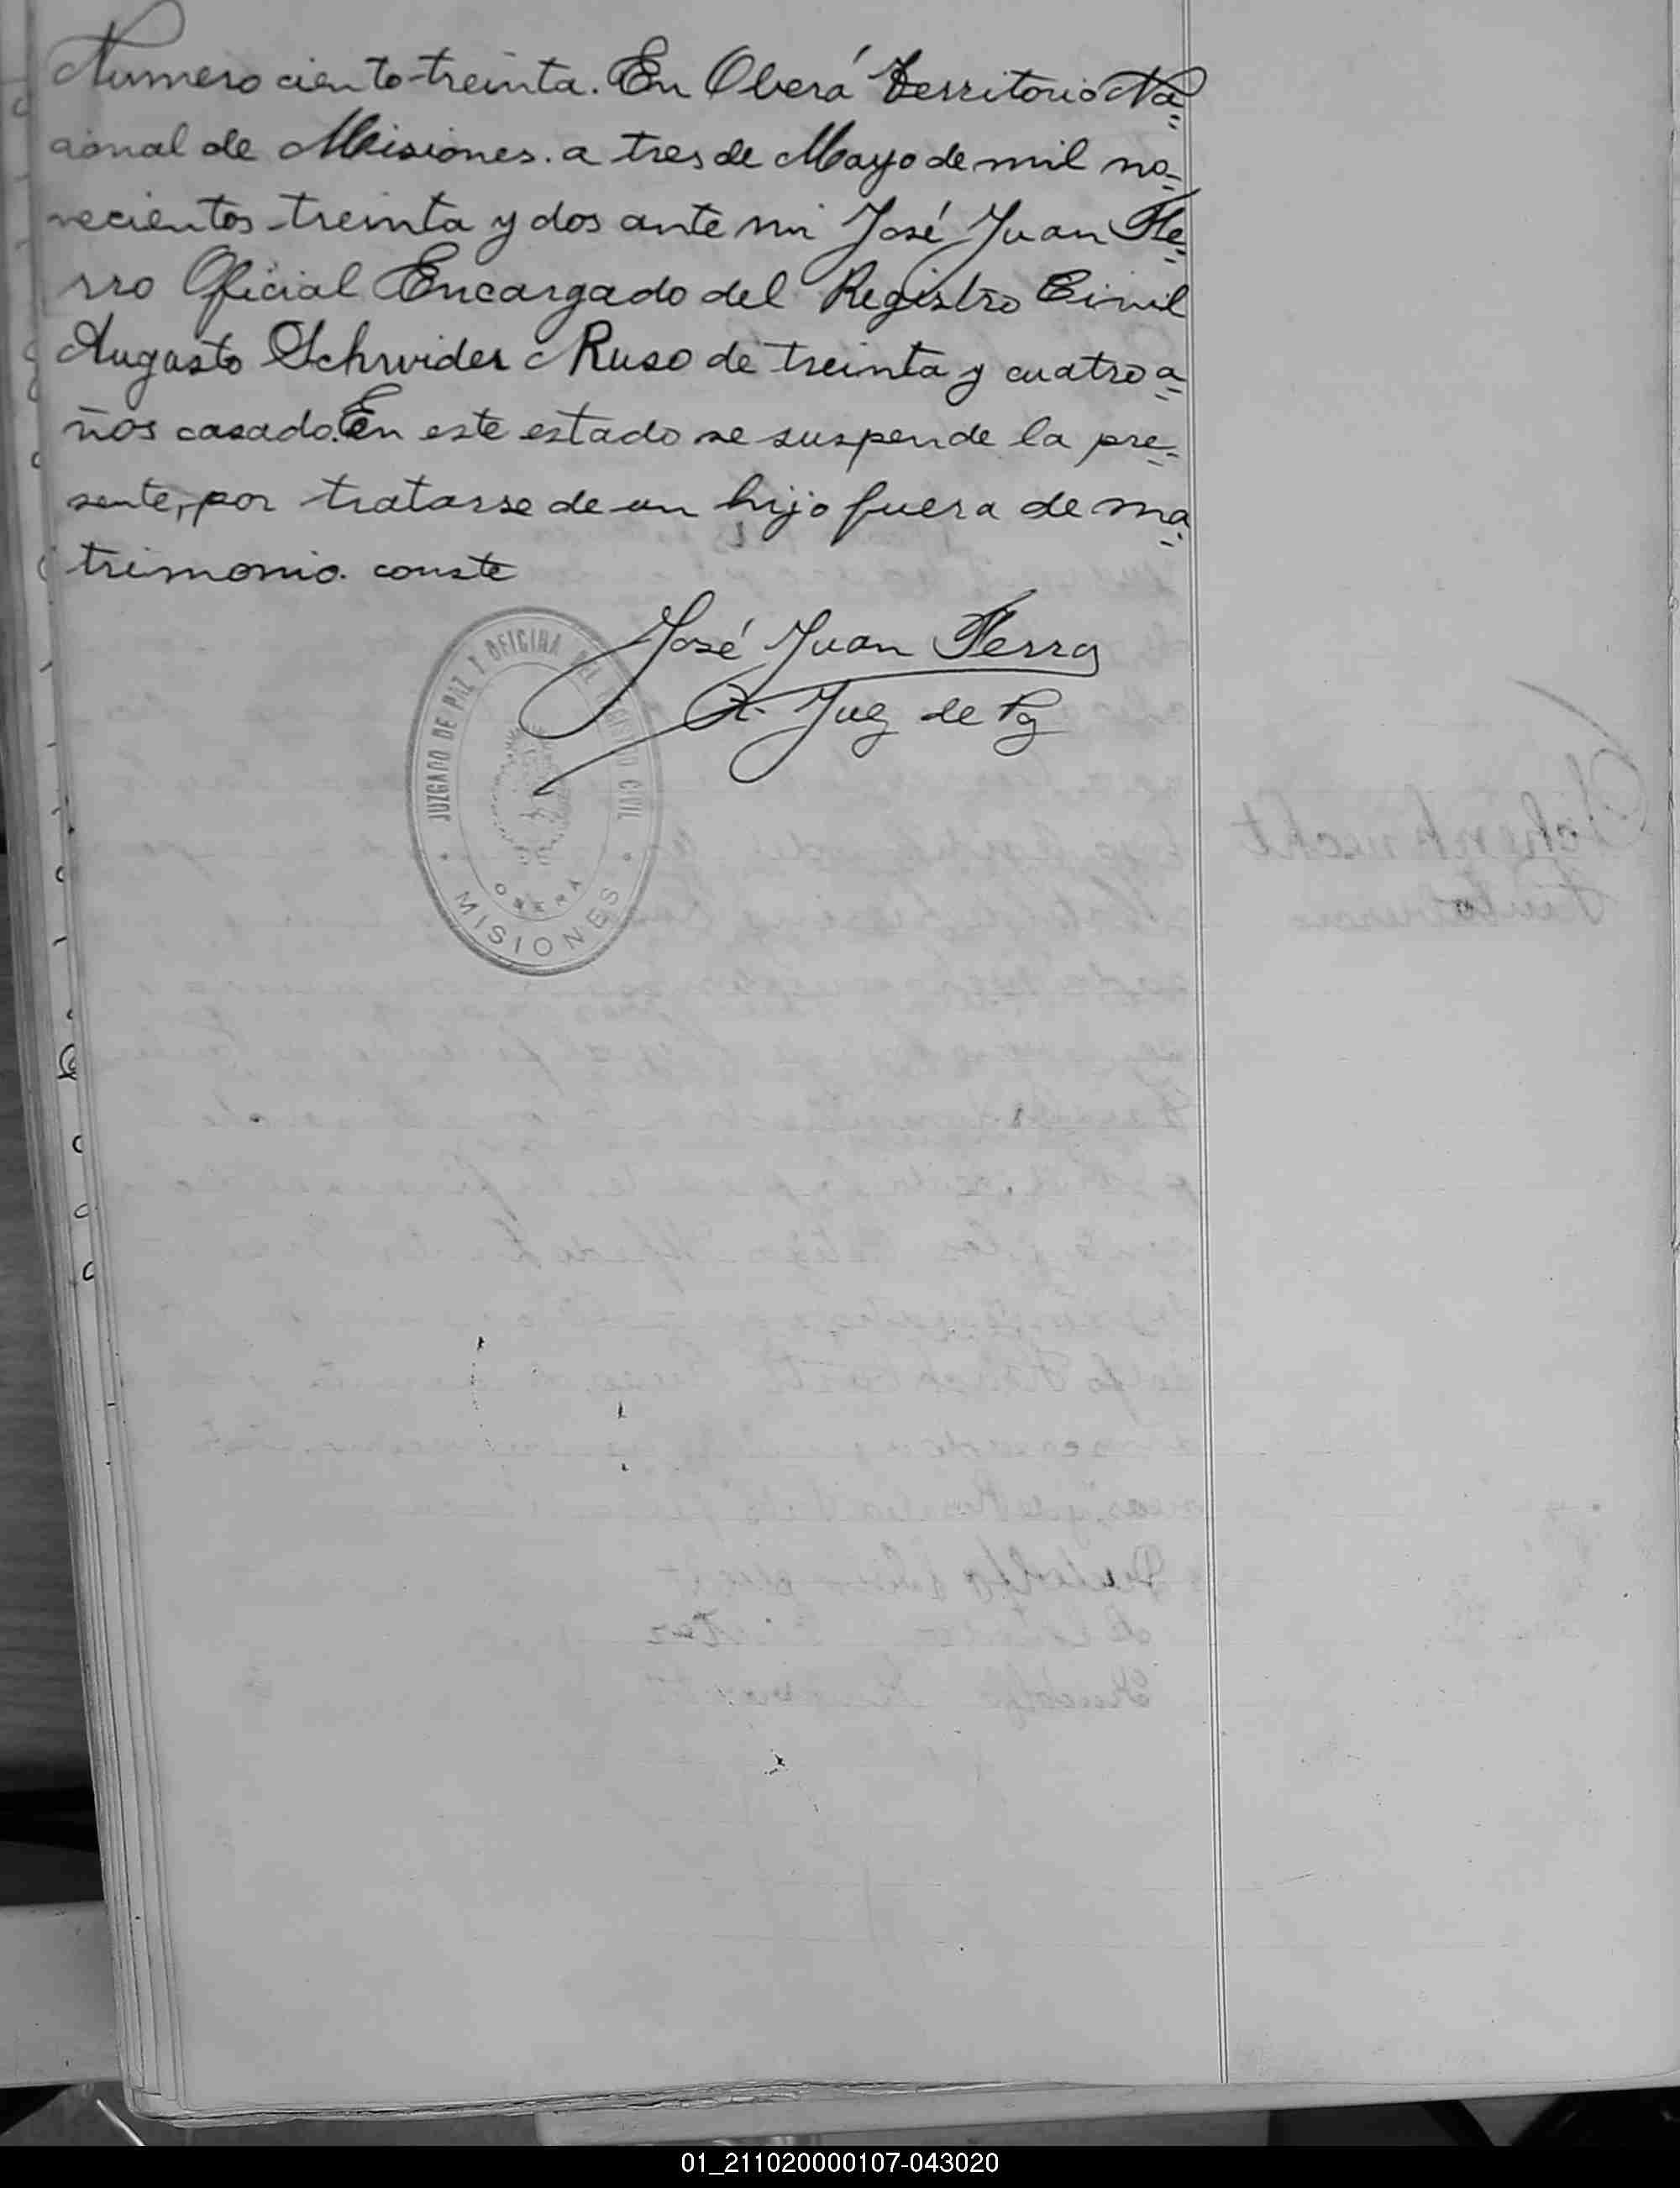 Numero ciento treinta. En Oberá Territorio Na=
cional de Misiones. a tres de Mayo de mil no=
vecientos treinta y dos ante mi José Juan Fie=
rro Oficial Encargado del Registro Civil
Augusto Schnider Ruso de treinta y cuatro a=
ños casado. En este estado se suspende la pre=
sente, por tratarse de un hijo fuera de ma=
trimonio. conste
José Juan Fierro
Juez de Pz
JUZGADO DE PAZ Y OFICINA DEL REGISTRO CIVIL
OBERÁ
MISIONES
01_211020000107-043020